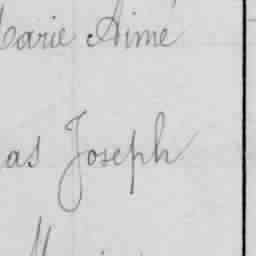 Marie Aimé
as Joseph